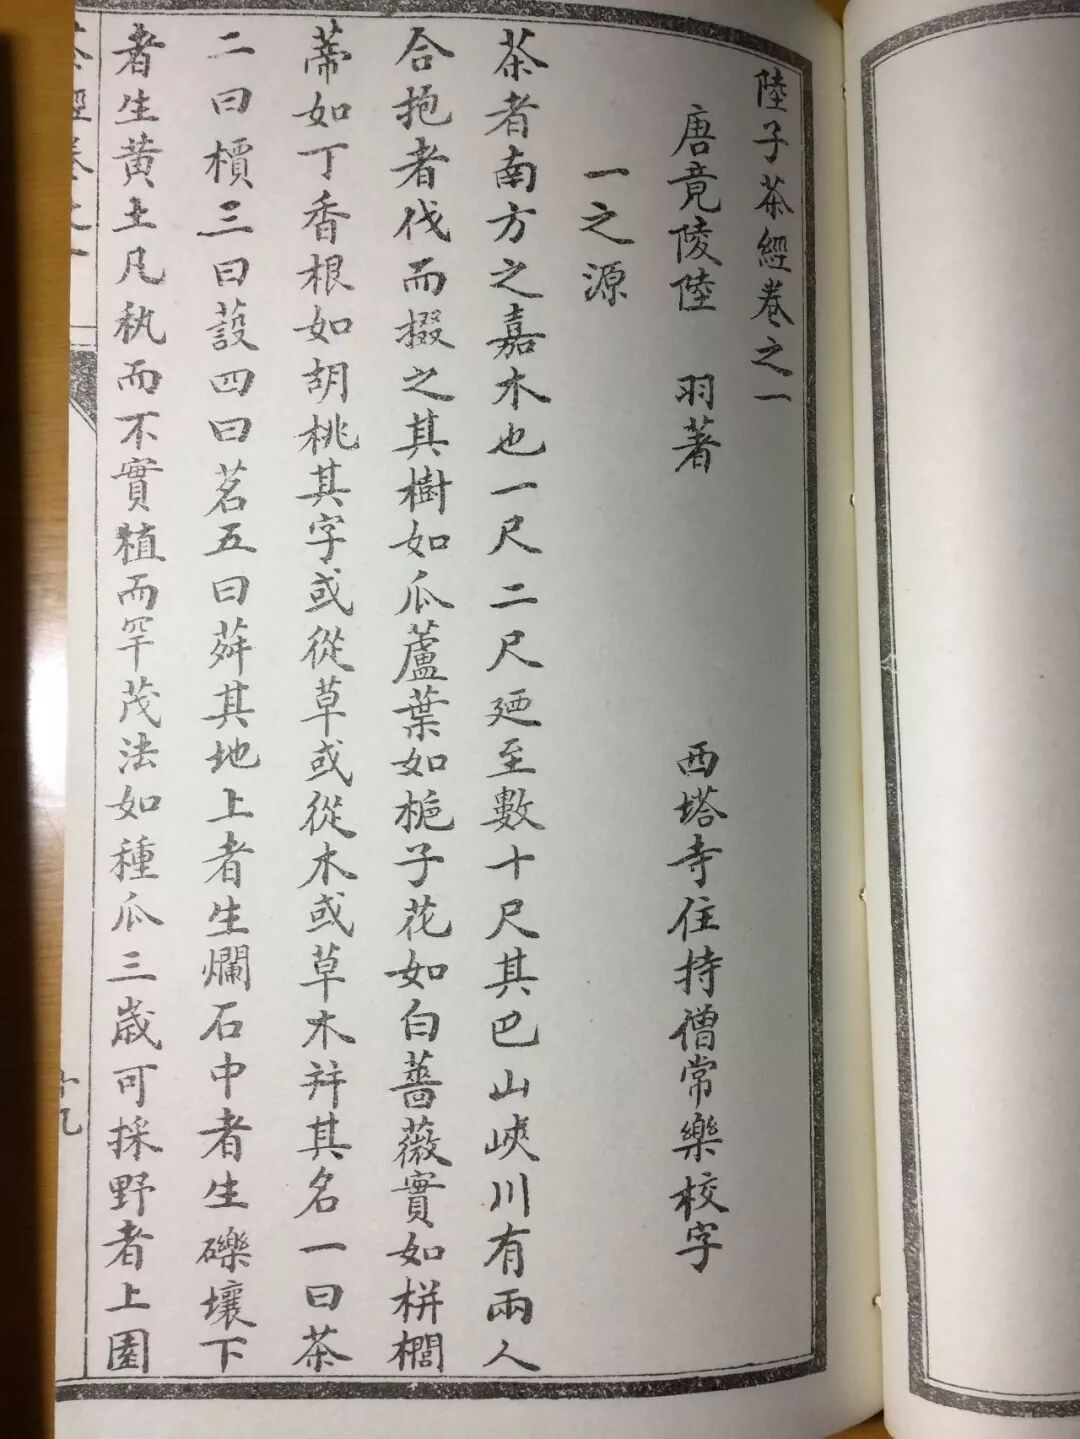 陸子茶經卷之一
唐竟陵陸　羽著　西塔寺住持僧常樂校字
一之源
茶者南方之嘉木也一尺二尺廼至數十尺其巴山峽川有兩人
合抱者伐而掇之其樹如瓜蘆葉如梔子花如白薔薇實如栟櫚
蒂如丁香根如胡桃其字或從草或從木或草木并其名一曰茶
二曰檟三曰蔎四曰茗五曰荈其地上者生爛石中者生礫壤下
者生黃土凡秇而不實植而罕茂法如種瓜三歲可採野者上園
茶經卷之一
十九